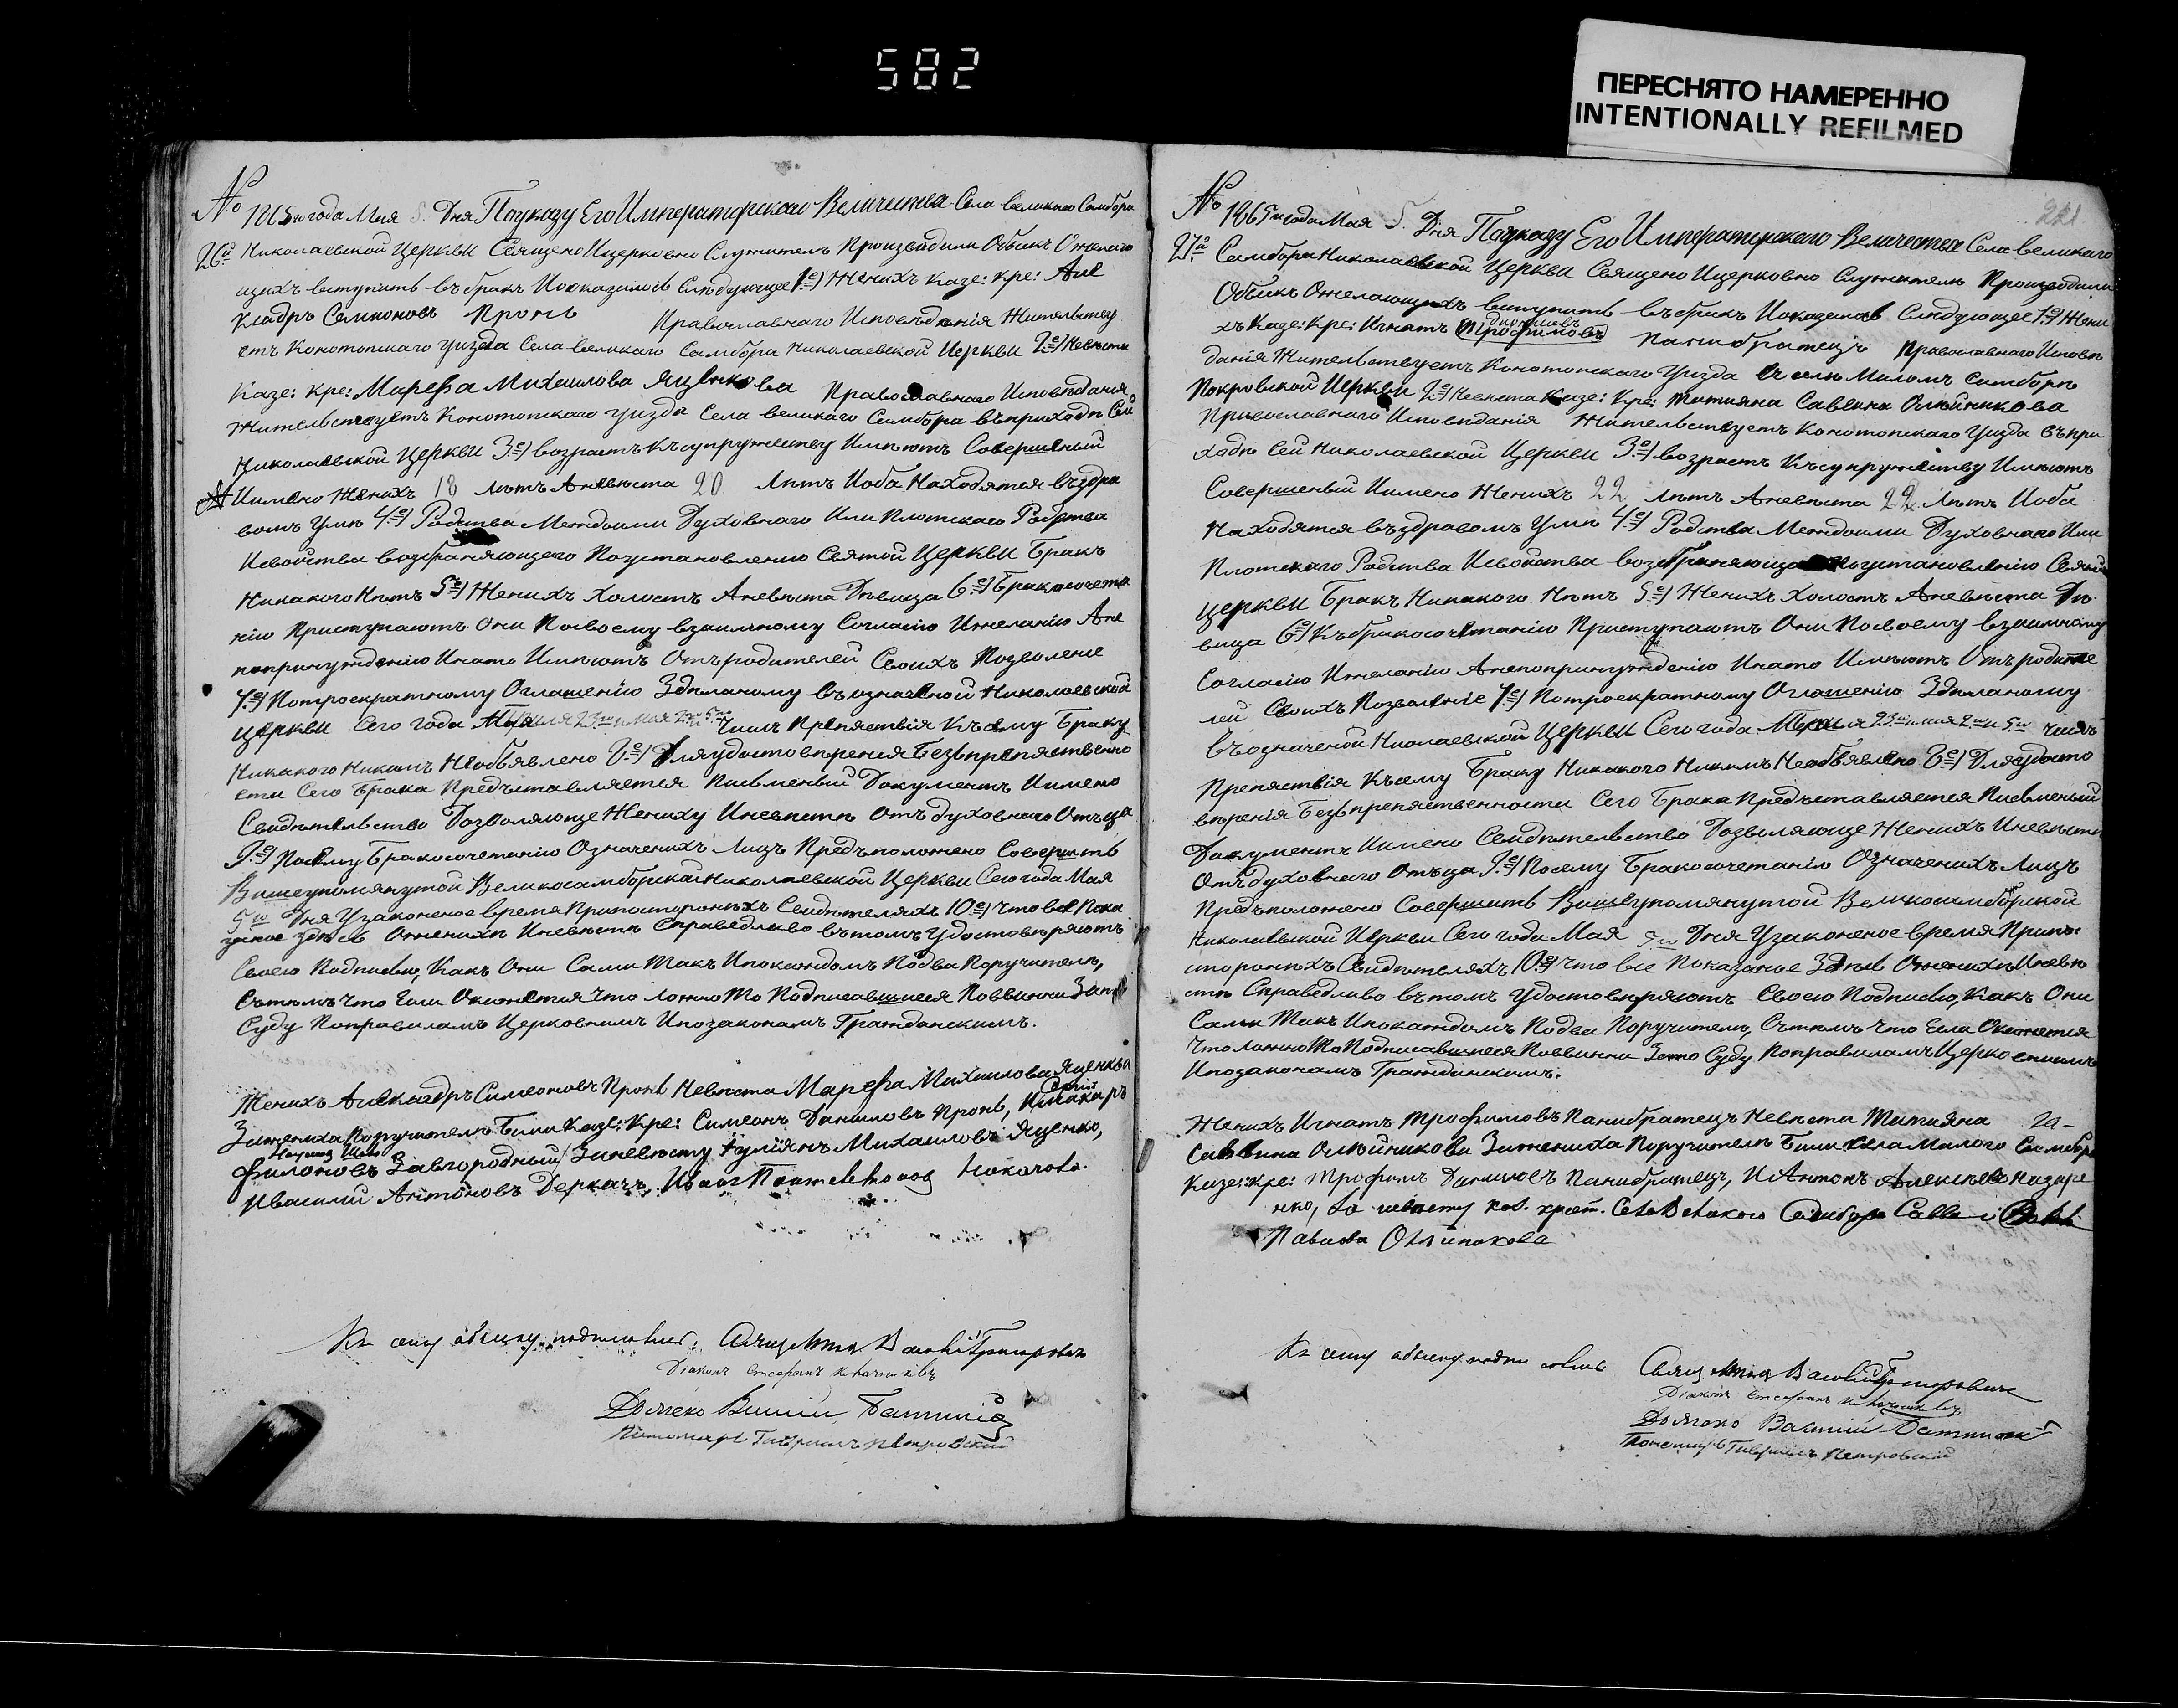 582
ПЕРЕСНЯТО НАМЕРЕННО
INTENTIONALLY REFILMED
No года Мая 5. Дня По указу Его Императорскаго Величества Села великаго Самбора
26й Николаевской Церкви Священо Ицерковно Служители Производили Обыск Ожелаю
щихъ вступить въ бракъ Ипоказалось Следующее 1е) Женихъ Казе: Кре: Але
Ксадръ Семионовъ Пронь Православнаго Исповѣданія Жительству
етъ Конотопскаго Уизда Села великаго Самбора Николаевской Церкви 2е) Невѣста
Казе: Кре: Марефа Михаилова Яценкова Православнаго Исповѣданія
Жительствуетъ Конотопскаго уизда Села великаго Самбора въ приходѣ Сей
Николаевской Церкви 3е) возрастъ Къ супружеству Имѣютъ Совершеный
Иимено Женихъ 18 лѣтъ Аневѣста 20 лѣтъ Иоба Находятся въ здра
вомъ Умѣ 4е) Родства Междоими Духовнаго Или Плотскаго Родства
Исвойства возбраняющего По установленію Святой Церкви Бракъ
Никакого Нѣтъ 5е) Женихъ Холостъ Аневѣста Дѣвица 6е) Бракосочета
нію Приступаютъ Они Посвоему взаимному Согласію Ижеланію Ане
попринужденію Инато Имѣютъ Отъ родителей Своихъ Позволеніе
7е) Потроекратному Оглашенію Здѣланому въ означеной Николаевской
Церкви Сего года Апреля 23го и Мая 2го и 5го Числъ Препяствія Къ сему Браку
Никакого Никимъ Необъявлено 8е) Для удостовѣренія Безъ препятственно
сти Сего Брака Предъставляется Письменый Документъ Иимено
Свидѣтельство Дозволяюще Жениху Иневѣстѣ Отъ духовнаго Отъца
9е) Посему Бракосочетанію Означенихъ Лицъ Предъположено Совершить
Вишеупомянутой Великосамборской Николаевской Церкви Сего года Мая
5го Дня Узаконеное время Припостороныхъ Свидѣтеляхъ 10е) Что все Пока
заное здѣсь Оженихѣ Иневѣстѣ Справедливо въ томъ Удостовѣряютъ
Своею Подписью, Какъ Они Сами Такъ Ипокаждомъ Подва Поручителя,
Сътѣмъ что Если Окажется Что ложно То Подписавшиеся Повинни Зато
Суду Поправиламъ Церковнимъ Ипозаконамъ Гражданскимъ.
Женихъ Александръ Симеоновъ Пронь Невѣста Марефа Михаилова Яценкова
Зажениха Поручителѣ Били Казе: Кре: Симеонъ Даниловъ Пронь, Имакаръ
Филоновъ Завгородный Заневѣсту Михаиловъ Яценко,
Ивасилий Антоновъ Деркачъ,
Къ сему обыску подписались: Василій Григоровичъ
Діаконъ Стефанъ
Дьячекъ Василій
Пономарь Гавріилъ Петровский
221
No 1865 года Мая 5. Дня По указу Его Императорскаго Величества Села великаго
27й Самбора Николаевской Церкви Священо Ицерковно Служители Производили
Обыскъ Ожелающихъ вступить въ бракъ Ипоказалось Следующее 1е) Жени
хъ Казе: Кре: Игнатъ Трофимовъ Панибратецъ Православнаго Исповѣ
данія Жительствуетъ Конотопскаго Уизда Въ селѣ Маломъ Самборѣ
Покровской Церкви 2е) Невѣста Казе: Кре: Татияна Саввина Олѣйникова
Православнаго Исповѣданія Жительствуетъ Конотопскаго Уизда въ при
ходѣ Сей Николаевской Церкви 3е) возрастъ Къ супружеству Имѣютъ
Совершеный Иимено Женихъ 22 лѣтъ Аневѣста 22 лѣтъ Иоба
Находятся въ здравомъ Умѣ 4е) Родства Междоими Духовнаго Или
Плотскаго Родства Исвойства возбраняюща По установленію Святой
Церкви Бракъ Никакого Нѣтъ 5е) Женихъ Холостъ Аневѣста Дѣ
вица 6е) Къ бракосочетанію Приступаютъ Они Посвоему взаимному
Согласію Ижеланію Анепопринужденію Инато Имѣютъ Отъ родите
лей Своихъ Позволеніе 7е) Потроекратному Оглашенію Здѣланому
въ означеной Николаевской Церкви Сего года Апреля 23го и мая 2го и 5го числъ
Препяствія Къ сему Браку Никакого Никимъ Необъявлено 8е) Для удосто
вѣренія Безъ препяственности Сего Брака Предъставляется Письменый
Документъ Иимено Свидѣтельство Дозволяюще Женихъ Иневѣсты
Отъ духовнаго Отъца 9е) Посему Бракосочетаніо Означенихъ Лицъ
Предъположено Совершить Вишеупомянутой Великосамборской
Николаевской Церкви Сего года Мая 5го Дня Узаконеное время Припо
стороныхъ Свидѣтеляхъ 10е) что все Показаное Здѣсь Оженихѣ Иневѣ
стѣ Справедливо въ томъ Удостовѣряютъ Своею Подписью, Какъ Они
Сами Такъ Ипокаждомъ Подва Поручителя, Сътѣмъ Что Если Окажется
Что ложно То Подписавшиеся Повинни Зато Суду Поправиламъ Церковнимъ
Ипозаконамъ Гражданскимъ.
Женихъ Игнатъ Трофимовъ Панибратецъ Невѣста Татияна
Саввина Олѣйникова Зажениха Поручителѣ Били села Малого Самбора
Казе: Кре: Трофимъ Даниловъ Панибратецъ, И Антонъ Алексѣевъ Назаре
нко, за невѣсту каз. крест. Села Великого Самбора Савва и
Павлова Олѣйникова
Къ сему обыску подписались Василій Григоровичъ
Діаконъ Стефанъ
Дьячекъ Василій
Пономарь Гавріилъ Петровский